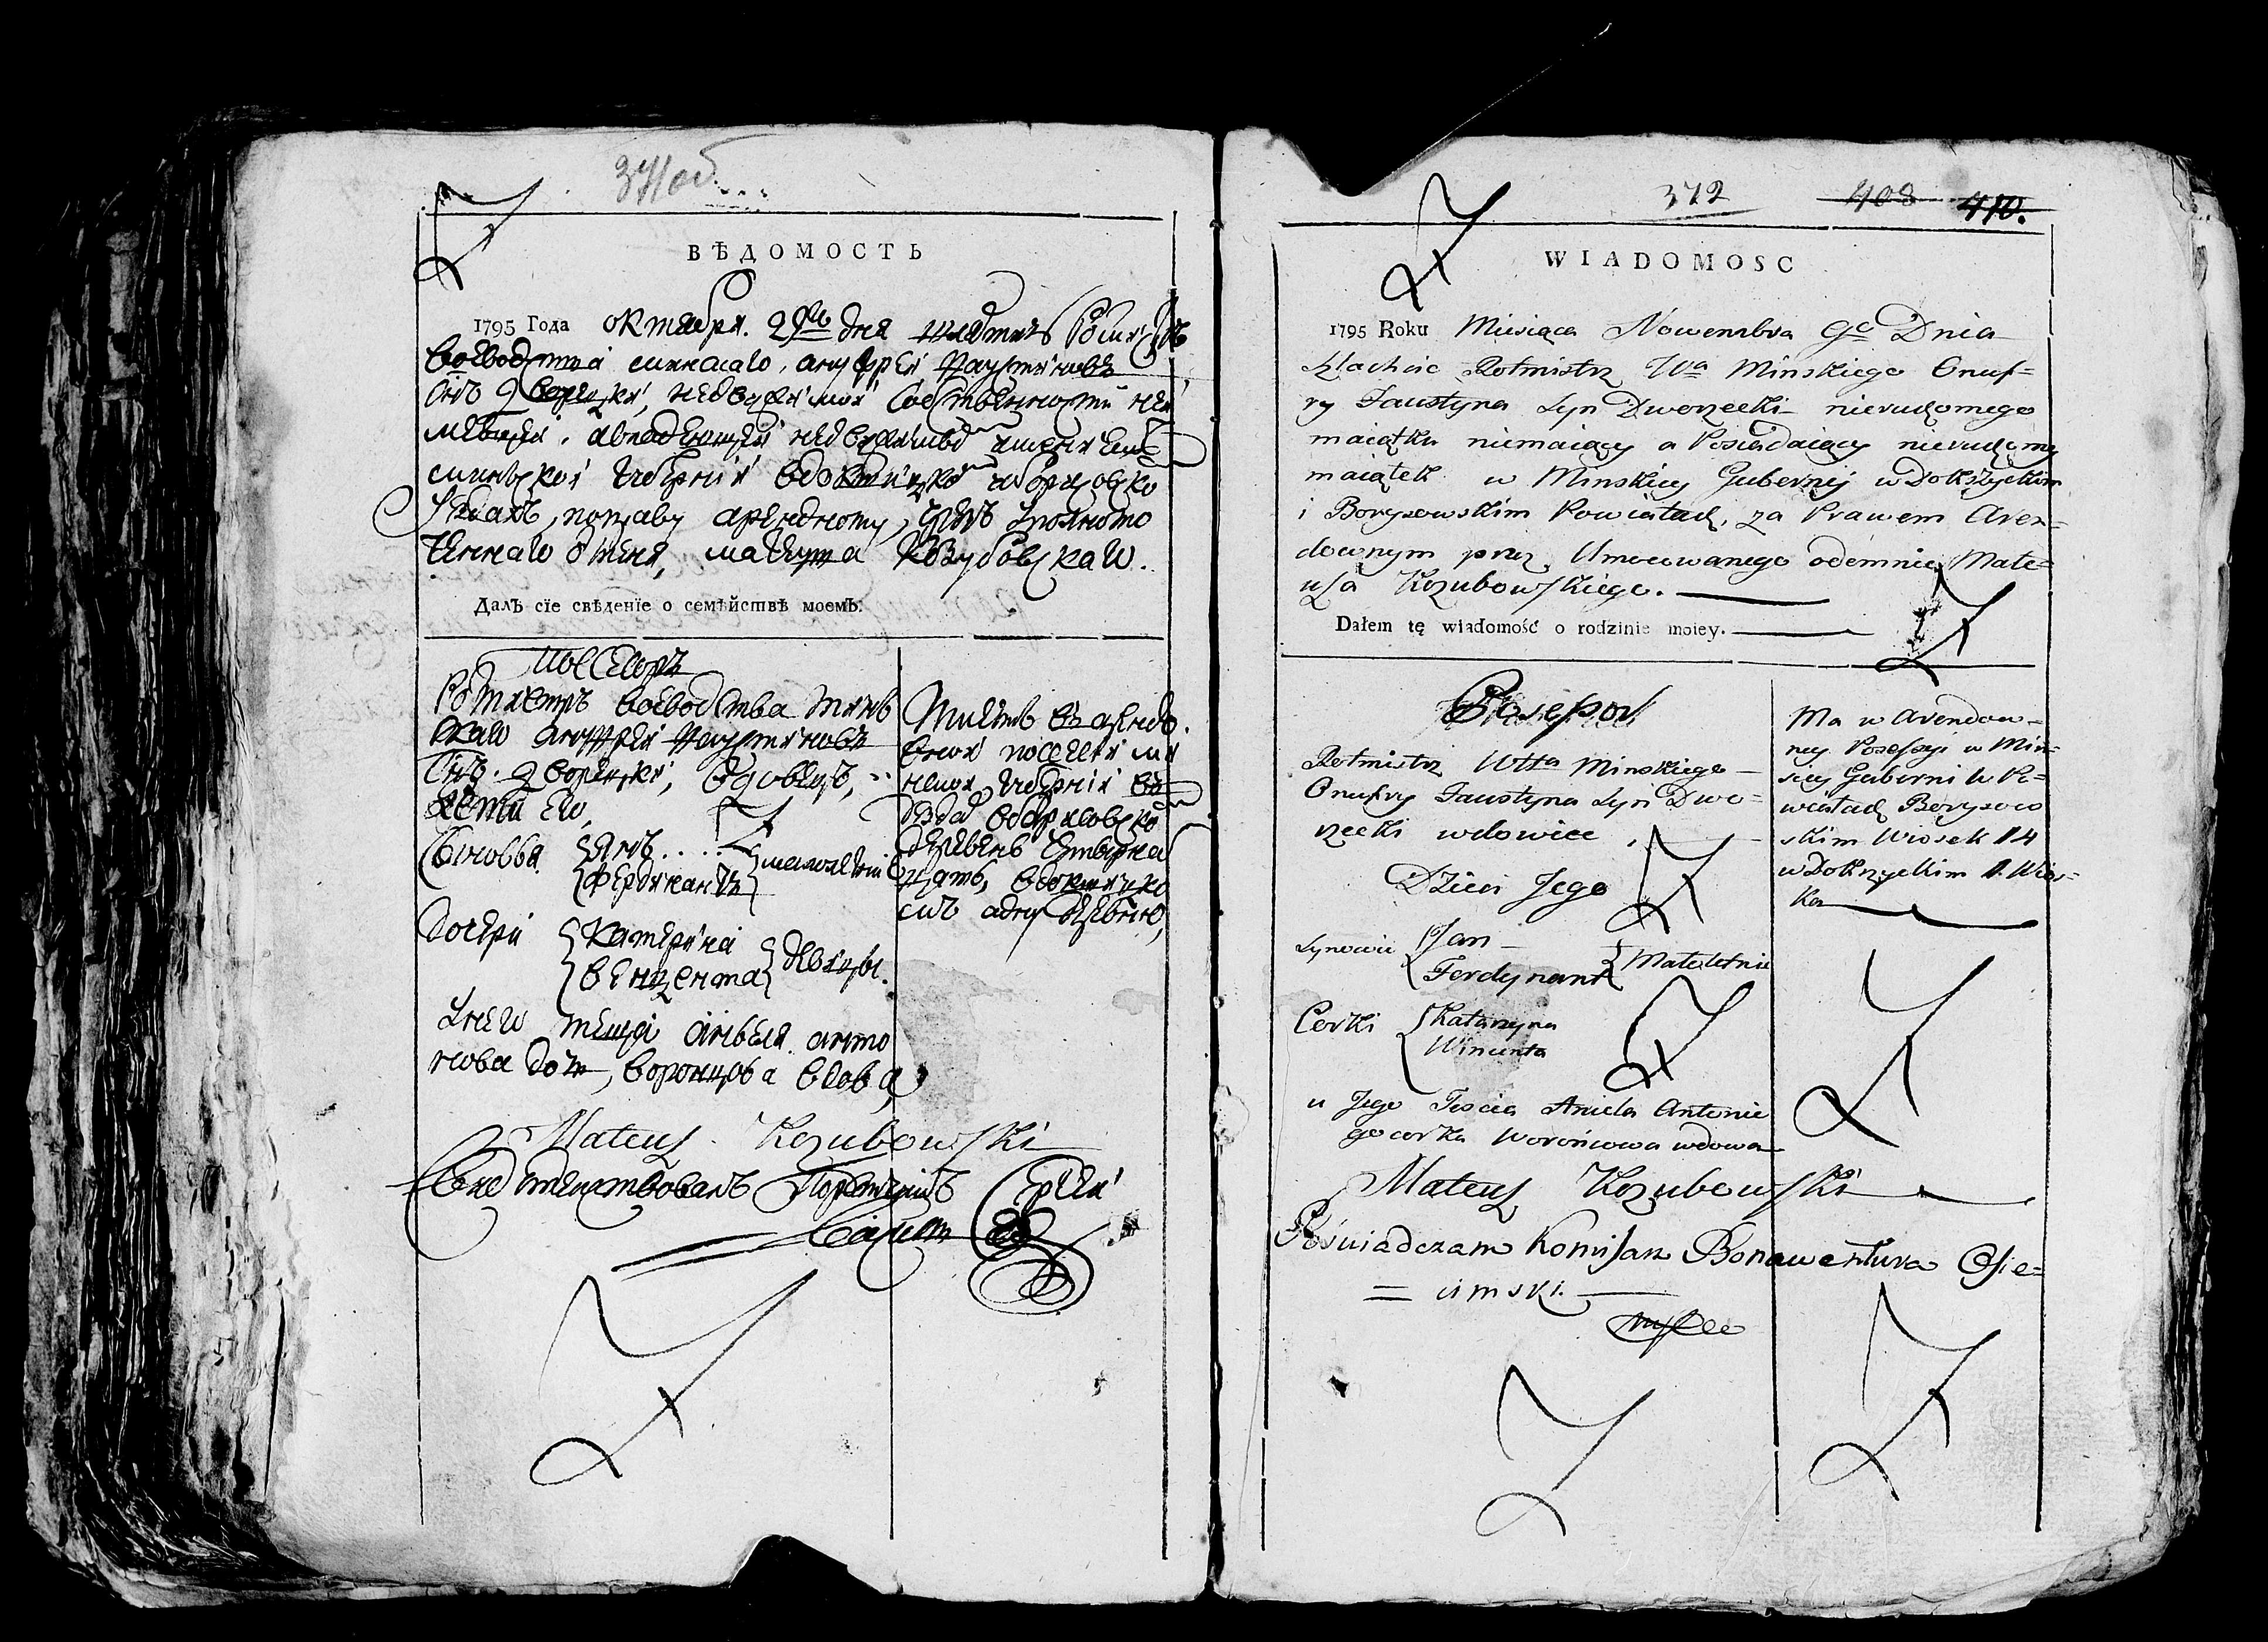 371 об
ВѢДОМОСТЬ
1795 Года октября 29го дня шляхтичь Ротмистръ
воеводства минскаго, ануфрей Фаустиновъ
сынъ Дворжецкй, недвижимой собственности неи
мевшей, авладеющей недвижимое имение
минской губернии вдокшицкомъ иборисовско
уездахъ, поправу арендному, чрезъ уполномо
ченнаго отменя, матеуша Козубовскаго.
Далъ сїе свѣденїе о семѣйствѣ моемъ.
Посесоръ
Ротмистръ воеводства минъ
скаго ануфрей Фаустиновъ
сынъ Дворжецкй, вдовецъ,
дети его,
Сыновья Янъ
Фердинантъ малолетние
Дочери Катерина
Венцента девицы.
Унего теща Анеля анто
нова дочь, воронцова вдова
имеетъ варендо
вной посессии ми
нской губернии въ
уездахъ вборисовско
деревень четырна
цать, вдокшицко
мъ адну деревню,
Mateusz Kozubowski
Свидетелствовалъ Порутчикъ Сергей
372 408 410.
WIADOMOSC
1795 Roku Miesiąca Nowembra 9go Dnia
Szlachcic Rotmistrz Wa Minskiego Onuf=
ry Faustyna Syn Dworzecki nieruchomego
maiątku niemaiący a Posiadaiący nieruchomy
maiątek w Minskiey Gubernij w Dokszyckim
i Borysowskim Powiatach, za Prawem Aren=
downym przez Umocowanego odemnie Mate=
usza Kozubowskiego.
Dałem tę wiadomość o rodzinie moiey.
Posesor
Rotmistrz Wttwa Minskiego
Onufry Faustyna Syn Dwo=
rzecki wdowiec
Dzieci Jego
Synowie Jan
Ferdynant Małoletnie
Corki Katarzyna
Wincenta
u Jego Tescia Aniela Antonie
go corka Worońcowa wdowa
Ma w arendow=
ney Posessyi w Min=
skiey Guberni w Po=
wiatach Borysow
skim Wiosek 14
w Dokszyckim 1. Wios=
ka
Mateusz Kozubowski
Poświadczam Komisarz Bonawentura Osie=
= cimski.